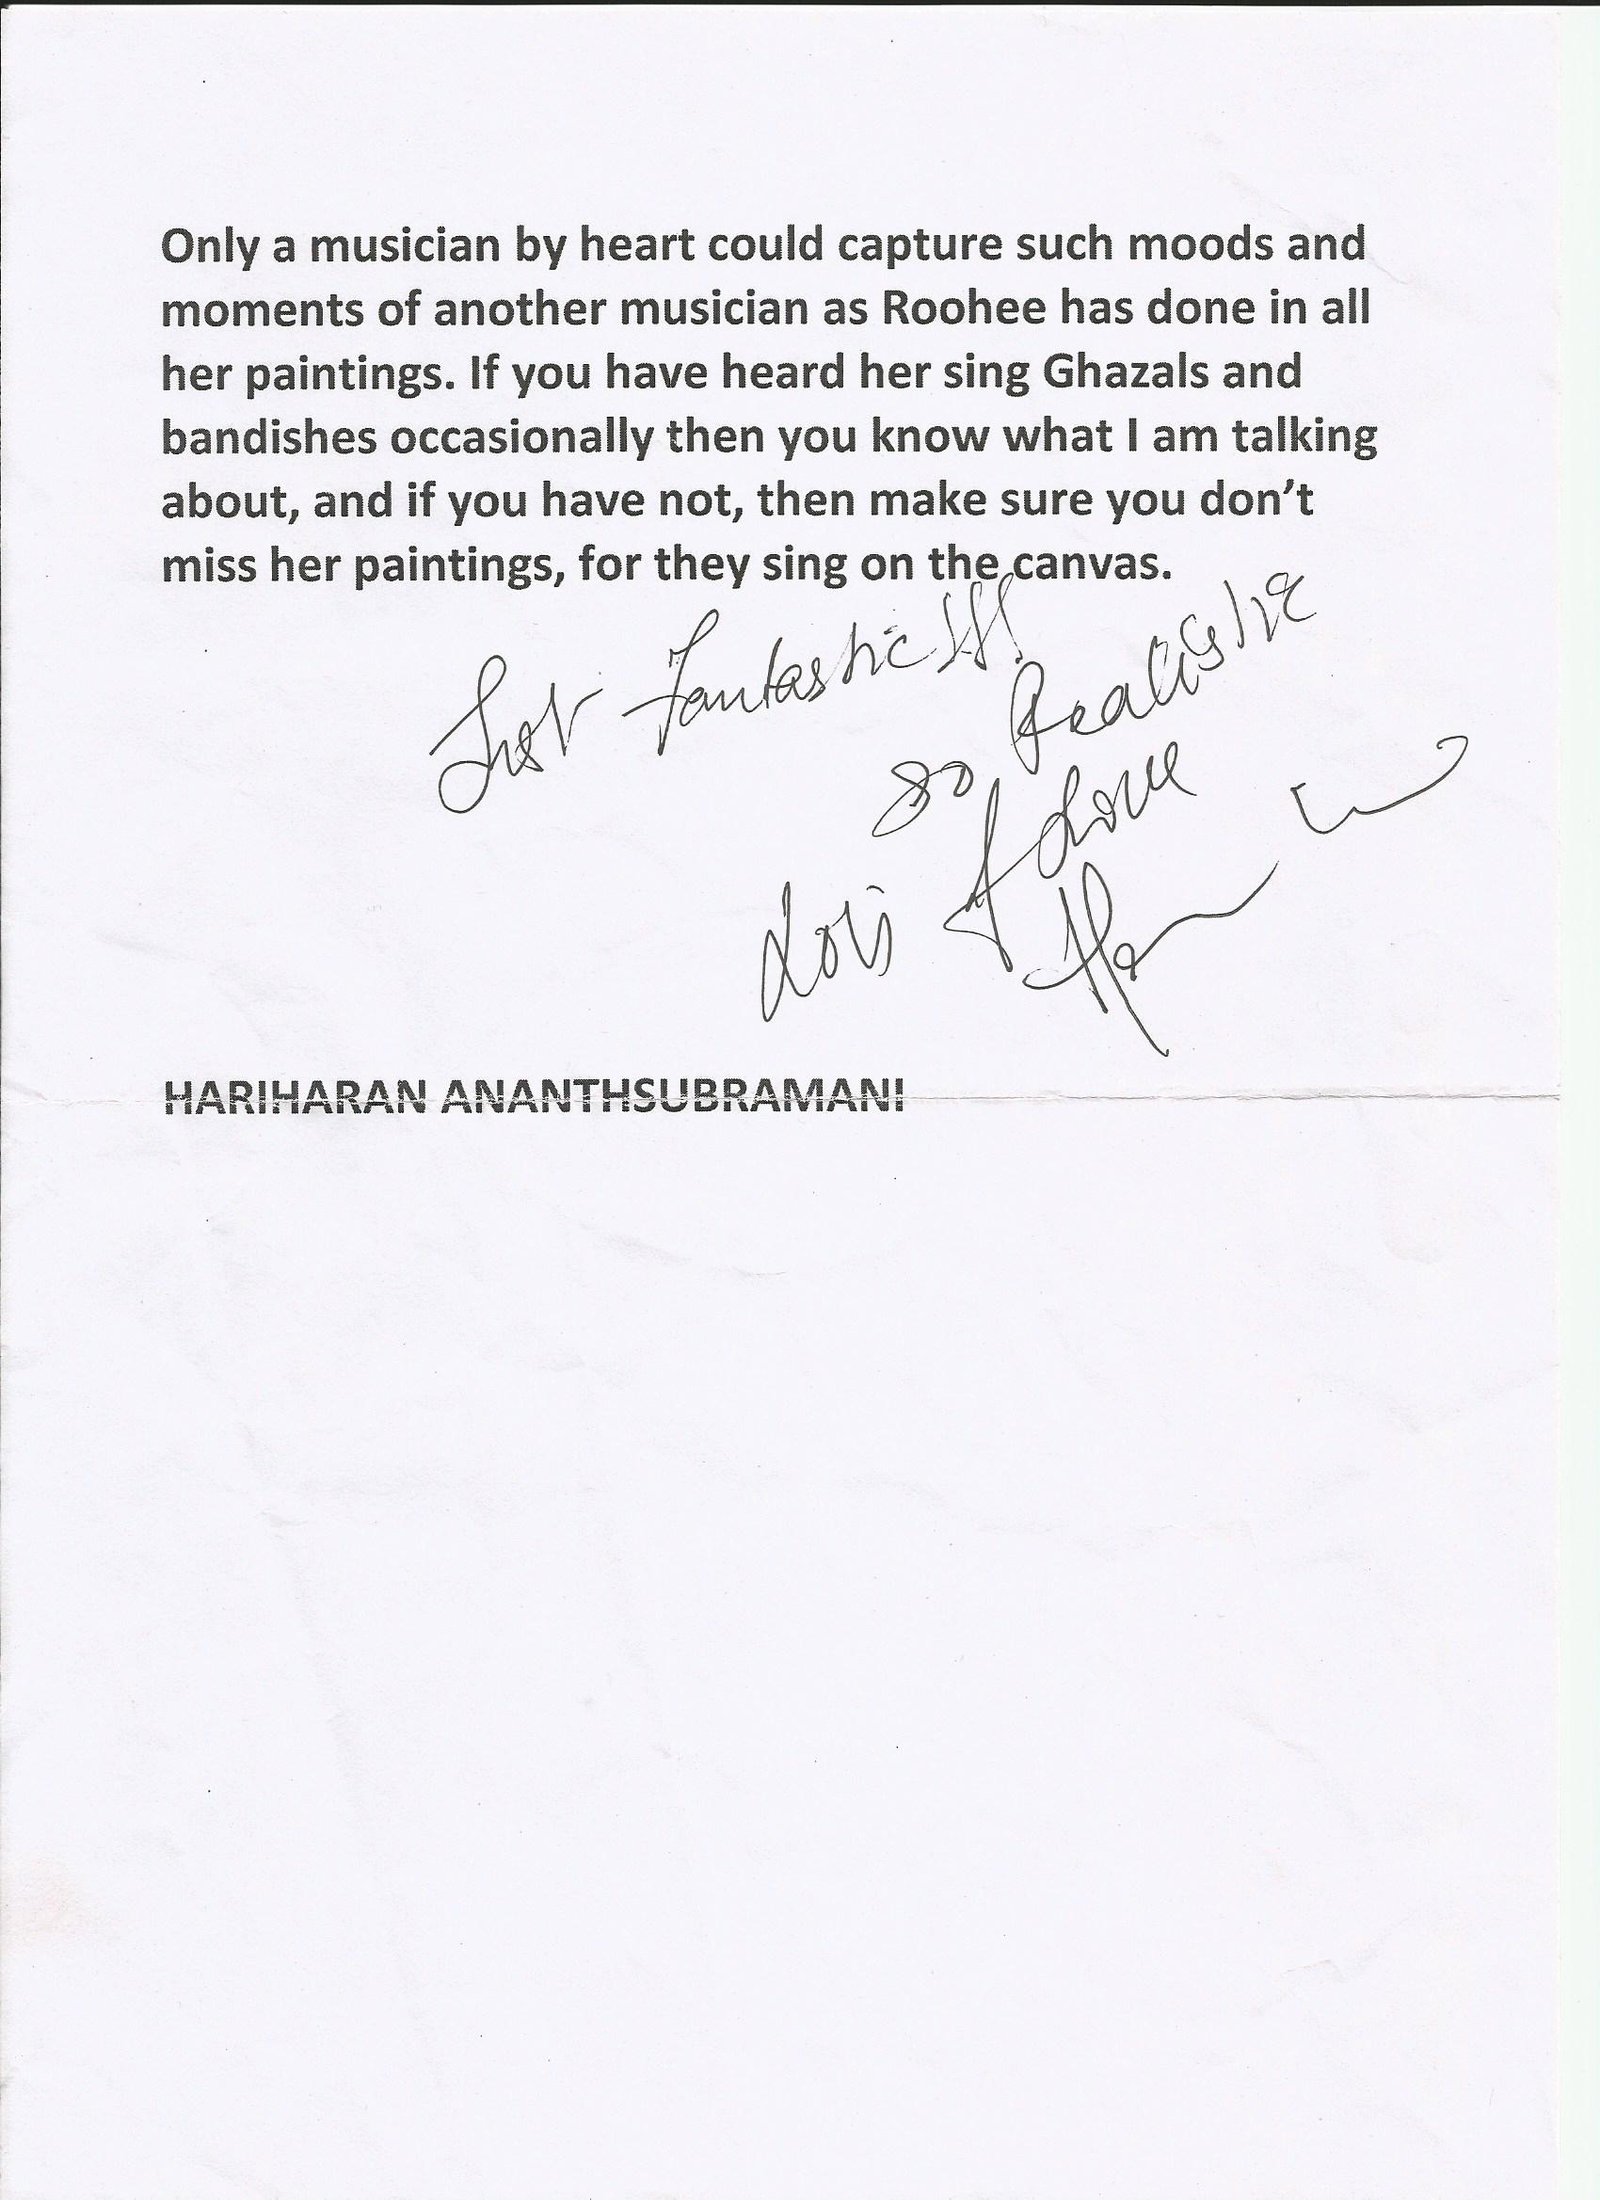 Only a musician by heart could capture such moods and
moments of another musician as Roohee has done in all
her paintings. If you have heard her sing Ghazals and
bandishes occasionally then you know what I am talking
about, and if you have not, then make sure you don’t
miss her paintings, for they sing on the canvas.
Just Fantastic !!!
So Realistic
Lots of Love
HARIHARAN ANANTHSUBRAMANI